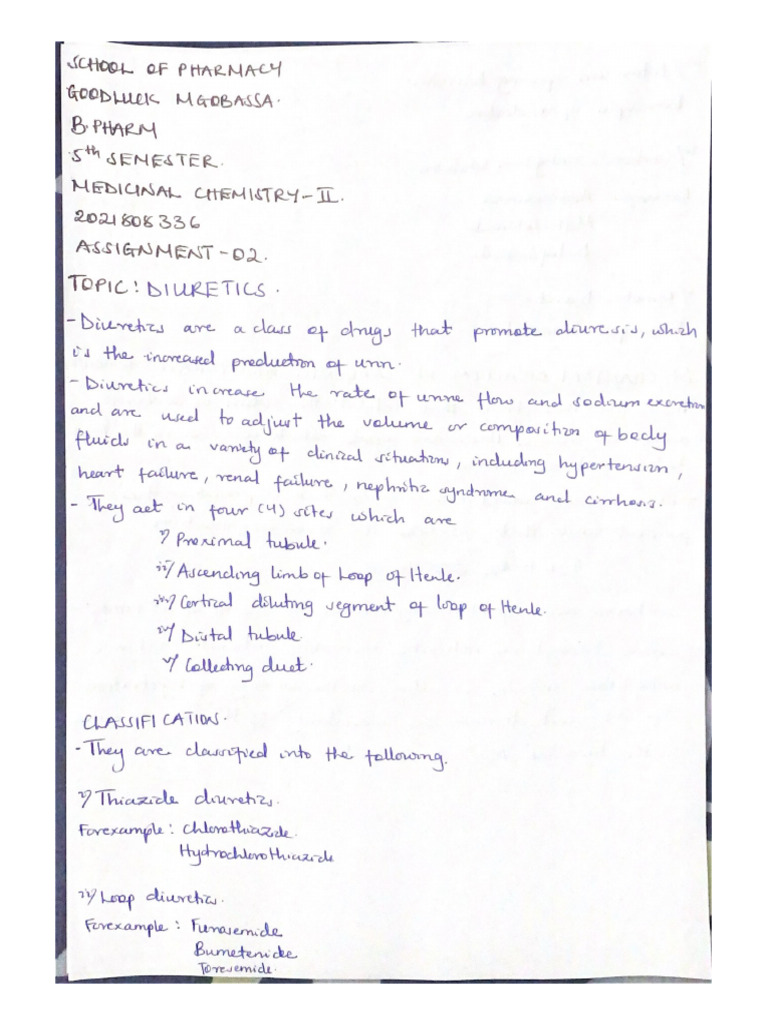 SCHOOL OF PHARMACY
GOODLUCK MGOBASSA.
B.PHARM
5th SEMESTER.
MEDICINAL CHEMISTRY-II.
2021808336
ASSIGNMENT-02.
TOPIC: DIURETICS.
- Diuretics are a class of drugs that promote diuresis, which
is the increased production of urin.
- Diuretics increase the rate of urine flow and sodium excretion
and are used to adjust the volume or composition of body
fluids in a variety of clinical situations, including hypertension,
heart failure, renal failure, nephritic syndrome and cirrhosis.
- They act in four (4) sites which are
i) Proximal tubule.
ii) Ascending limb of Loop of Henle.
iii) Cortical diluting segment of loop of Henle.
iv) Distal tubule
v) Collecting duct.
CLASSIFICATION.
- They are classified into the following.
i) Thiazide diuretics.
For example: Chlorothiazide.
Hydrochlorothiazide
ii) Loop diuretics.
For example: Furosemide
Bumetenide
Toresemide.